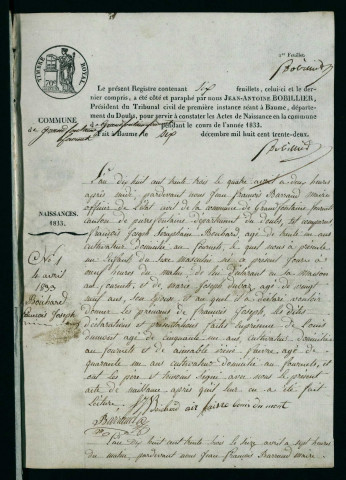 1er Feuillet
Bobillier
TIMBRE ROYAL
Le présent Registre contenant six feuillets, celui-ci et le der-
nier compris, a été coté et paraphé par nous JEAN-ANTOINE BOBILLIER,
Président du Tribunal civil de première instance séant à Baume, départe-
ment du Doubs, pour servir à constater les Actes de Naissance en la commune
de pendant le cours de l'année 1833.
Fait à Baume le dix décembre mil huit cent trente-deux.
Bobillier
COMMUNE
de grandfontaine
fournets
NAISSANCES.
1833.
N° 1
4 avril
1833
Bouhard
françois Joseph
L'an dix huit cent trente trois le quatre avril à deux heures
après midi, pardevant nous Jean françois Barrand maire
officier de l'état civil de la commune de Grandfontaine fournets
canton de pierrefontaine département du doubs, est comparu
françois Joseph Bouhard agé de trente un ans
cultivateur domicilié au fournets, le quel nous a présenté
un enfant du sexe masculin né à présent jour à
onze heures du matin, de lui déclarant en sa maison
au fournets, et de marie Joseph agée de vingt
neuf ans, son épouse et au quel il a déclaré vouloir
donner les prénoms de françois Joseph, les dites
déclarations et présentations faites en présence de Louis
dumont agé de cinquante un ans, cultivateur domicilié
au fournets et de aimable faivre, agé de
quarante un ans cultivateur domicilié au fournets, et
ont les père et témoins signé avec nous le présent
acte de naissance après qu'il leur en a été fait
lecture.
Bouhard faivre Louis du mont
Barrand
L'an dix huit cent trente trois le seize avril à sept heures
du matin, pardevant nous Jean françois Barrand maire